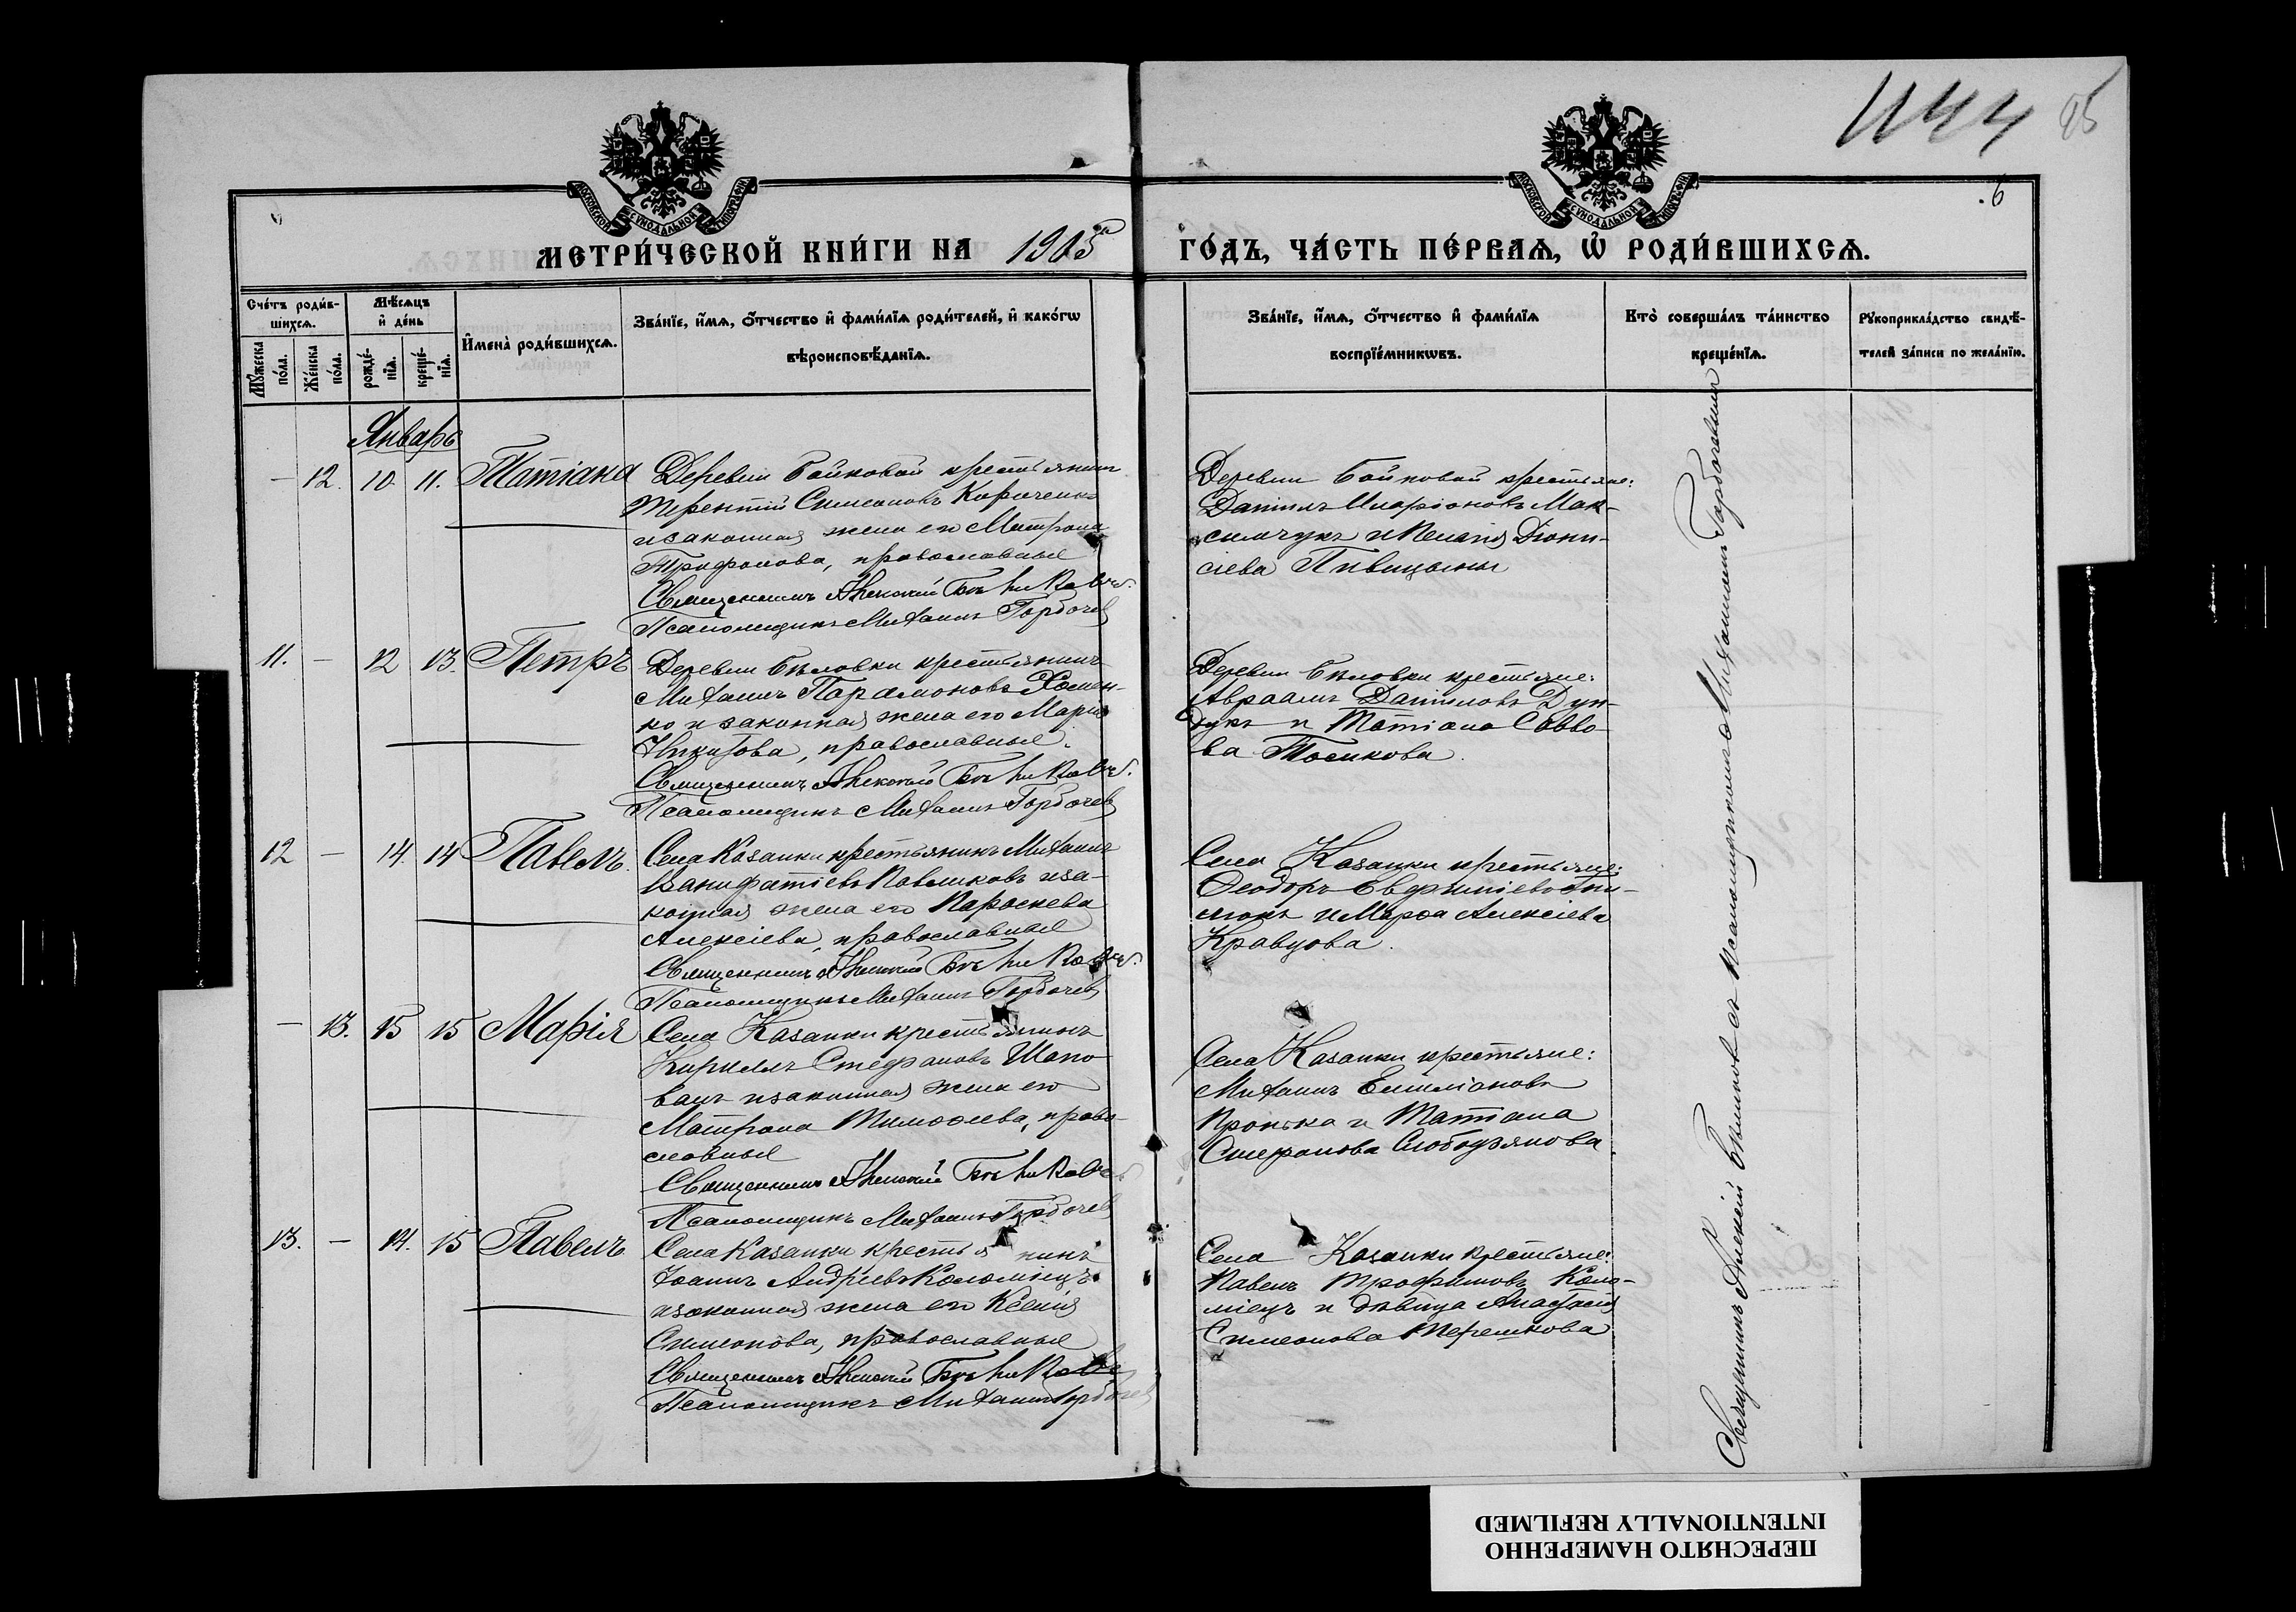 1144 95
6
МОСКОВСКОЙ СУНОДАЛЬНОЙ ТИПОГРАФІИ
МОСКОВСКОЙ СУНОДАЛЬНОЙ ТИПОГРАФІИ
МЕТРИ́ЧЕСКОЙ КНИ́ГИ НА 1905 ГО́ДЪ, ЧА́СТЬ ПЕ́РВАѦ, Ѡ҆ РОДИ́ВШИХСѦ.
Сче́тъ роди́в-
шихсѧ.
Мѣ́сѧцъ
и҆ де́нь
Мꙋ́жеска
по́ла.
Же́нска
по́ла.
рожде́-
нїѧ.
креще́-
нїѧ.
И҆мена̀ роди́вшихсѧ.
Зва́нїе, и҆́мѧ, ѻ҆́тчество и҆ фами́лїѧ роди́телей, и҆ како́гѡ
вѣроисповѣ́данїѧ.
Зва́нїе, и҆́мѧ, ѻ҆́тчество и҆ фами́лїѧ
воспрїе́мникѡвъ.
Кто̀ соверша́лъ та́инство
креще́нїѧ.
Рꙋкоприкла́дство свидѣ́-
телей за́писи по жела́нїю.
Январь
— 12. 10. 11. Татіана
Деревни Бойковой крестьянинъ
Терентій Симеоновъ Кириченко
и законная жена его Матрона
Трифонова, православные
Священникъ Алексій Бѣликовъ.
Псаломщикъ Михаилъ Горбачев
Деревни Бойковой крестьяне:
Даніилъ Иларіоновъ Мак-
симчукъ и Пелагія Діони-
сіева Пивицына
11. — 12 13. Петръ
Деревни Бѣловки крестьянинъ
Михаилъ Парамоновъ Хомен-
ко и законная жена его Марія
Никитова, православные.
Священникъ Алексій Бѣликовъ.
Псаломщикъ Михаилъ Горбачев
Деревни Бѣловки крестьяне:
Авраамъ Даниловъ Дун-
дукъ и Татіана Савво-
ва Носикова.
12 — 14. 14 Павелъ.
Села Казанки крестьянинъ Михаилъ
Ванифатіевъ Павликовъ и за-
конная жена его Параскева
Алексіева, православные
Священникъ Алексій Бѣликовъ.
Псаломщикъ Михаилъ Горбачев
Села Казанки крестьяне:
Ѳеодоръ Евфиміевъ Они-
сюкъ и Марѳа Алексіева
Кравцова.
— 13. 15 15 Марія
Села Казанки крестьянинъ
Кириллъ Стефановъ Шапо-
валъ и законная жена его
Матрона Тимоѳеева, право-
славные
Священникъ Алексій Бѣликовъ.
Псаломщикъ Михаилъ Горбачев
Села Казанки крестьяне:
Михаилъ Емиліановъ
Пронька и Татіана
Стефанова Слободянова.
13. — 14. 15 Павелъ
Села Казанки крестьянинъ
Іоаннъ Андріевъ Коломіецъ
и законная жена его Ксенія
Симеонова, православные
Священникъ Алексій Бѣликовъ
Псаломщикъ Михаилъ Горбачев
Села Казанки крестьяне:
Павелъ Трофимовъ Коло-
міецъ и дѣвица Анастасія
Симеонова Терешкова
Священникъ Алексій Бѣликовъ съ псаломщикомъ Михаиломъ Горбачевымъ
ПЕРЕСНЯТО НАМЕРЕННО
INTENTIONALLY REFILMED